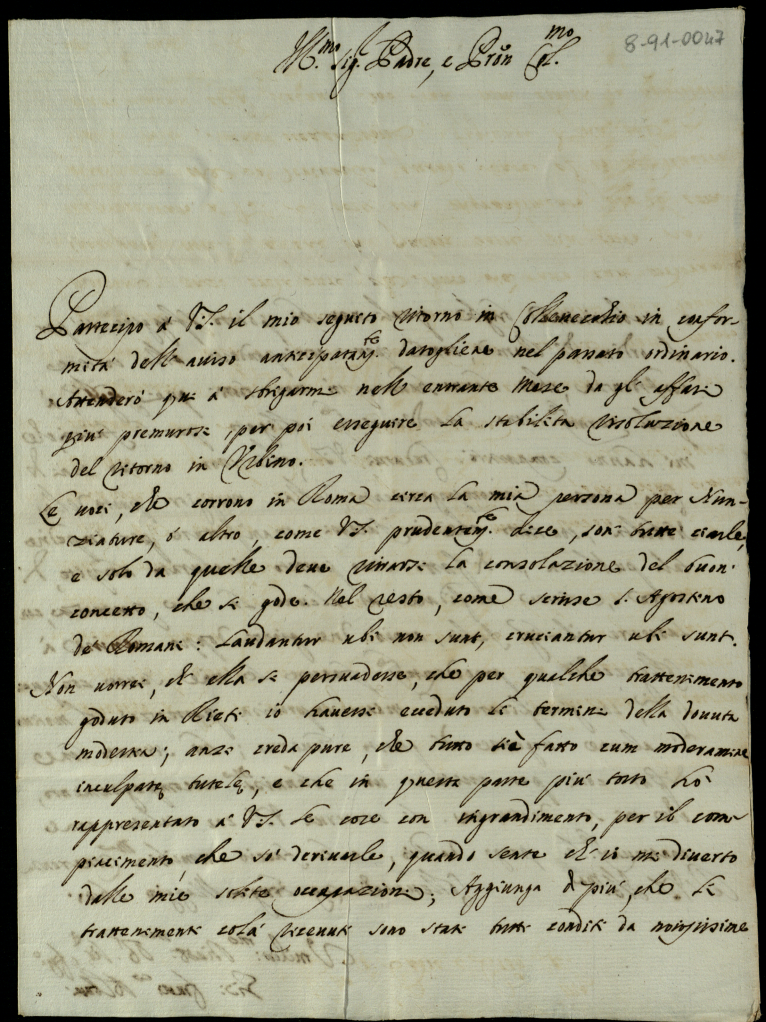 8-91-0047
Ill.mo Sig. Padre, e Pron Col.mo
Partecipo à V.S. il mio seguito ritorno in Collevecchio in confor-
mità dell'auiso anticipatam.te datogliene nel passato ordinario.
Attenderò qui à sbrigarmi nell'entrante Mese da gl'affari
più premurosi, per poi esseguire la stabilita risoluzione
del ritorno in Urbino.
Le uoci, che corrono in Roma circa la mia persona per Nun-
ziature, ò altro, come V.S. prudentem.te dice, son tutte ciarle,
e solo da quelle deue tirarsi la consolazione del buon
concetto, che si gode. Nel resto, come scrisse S. Agostino
de' Romani: Laudantur ubi non sunt, cruciantur ubi sunt.
Non uorrei, ch'ella si persuadesse, che per qualche trattenimento
goduto in Rieti io hauessi ecceduto li termini della douuta
modestia; anzi creda pure, che tutto si è fatto cum moderamine
inculpatę tutelę, e che in questa parte più tosto hò
rappresentato à V.S. le cose con ingrandimento, per il com-
piacimento, che sò deriuarle, quando sente ch'io mi diuerto
dalle mie solite occupazioni; Aggiunga di più, che li
trattenimenti colà riceuuti sono stati tutti conditi da noiosissime